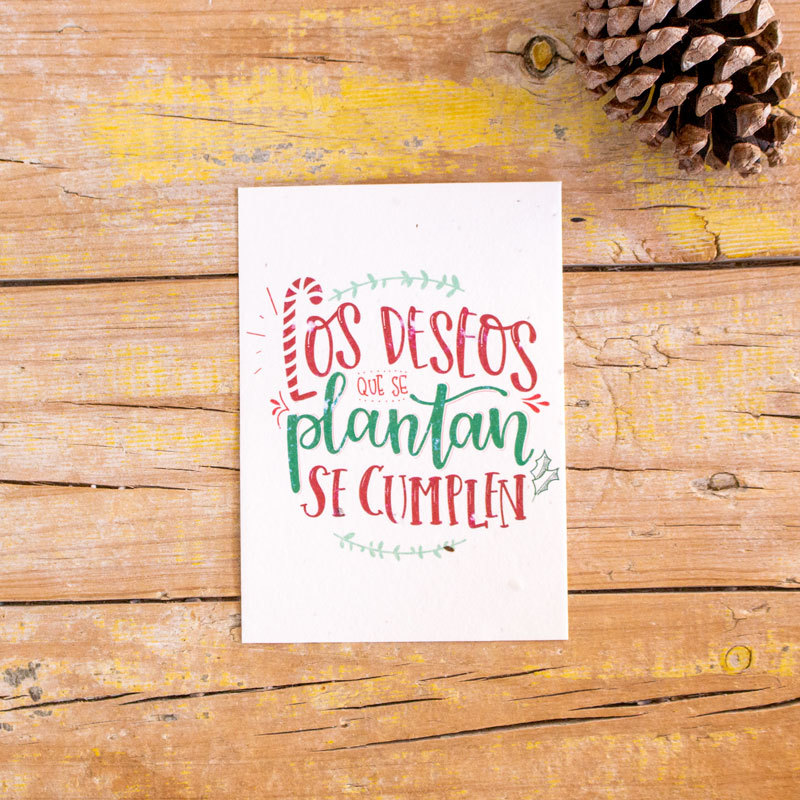 LOS DESEOS
QUE SE
plantan
SE CUMPLEN